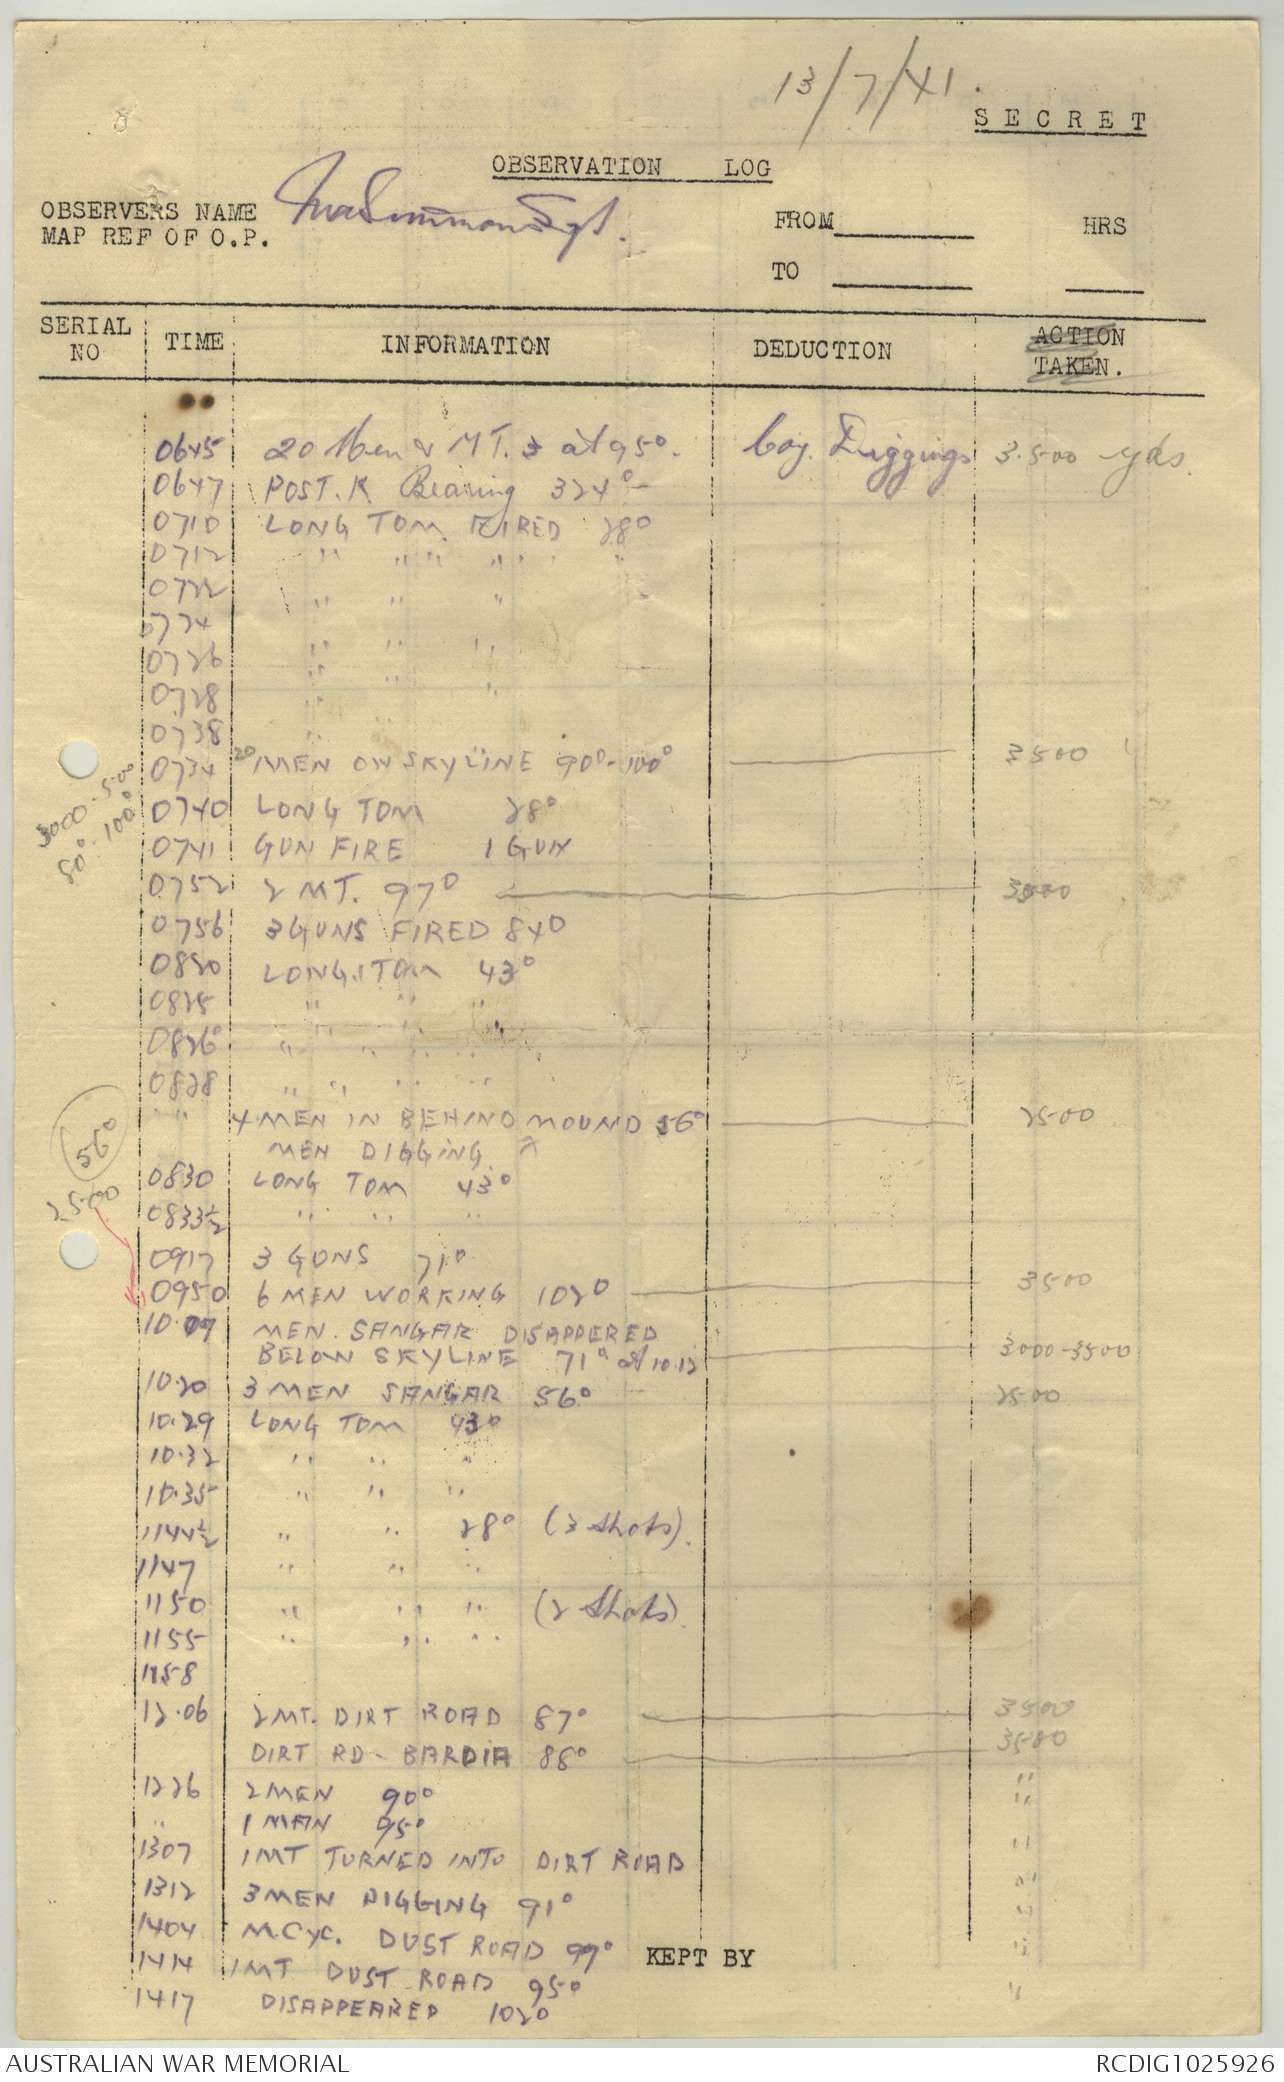 13/7/41.
SECRET
OBSERVATION LOG
OBSERVERS NAME Simmons Sgt.
MAP REF OF O.P.
FROM HRS
TO
SERIAL NO TIME INFORMATION DEDUCTION ACTION TAKEN.
0645 20 Men & MT. 3 at 95°. Coy. Diggings 3500 yds.
0647 POST. K Bearing 324° -
0710 LONG TOM FIRED 28°
0712 " " " "
0722 " " "
0724 " " "
0726 " " "
0728 "
0738 "
0734 20 MEN ON SKYLINE 90°-100° 3500
3000-3500
80°-100°
0740 LONG TOM 28°
0741 GUN FIRE 1 GUN
0752 2 MT. 97° 3500
0756 3 GUNS FIRED 84°
0820 LONG TOM 43°
0825 " " "
0826 " " " "
0828 " " " "
" 4 MEN IN BEHIND MOUND 56° 2500
MEN DIGGING
56°
2500
0830 LONG TOM 43°
0833½ " " "
0917 3 GUNS 71°
0950 6 MEN WORKING 102° 3500
10.09 MEN. SANGAR DISAPPERED
BELOW SKYLINE 71° at 10.12 3000-3500
10.20 3 MEN SANGAR 56° 2500
10.29 LONG TOM 43°
10.32 " " "
10.35 " " "
1144½ " " 28° (3 shots).
1147 " " "
1150 " " " (2 shots)
1155 " " "
1158
12.06 2 MT. DIRT ROAD 87° 3500
DIRT RD - BARDIA 88° 3500
1226 2 MEN 90° "
" 1 MAN 95° "
1307 1 MT TURNED INTO DIRT ROAD "
1312 3 MEN DIGGING 91° "
1404 M.Cyc. DUST ROAD 99° "
KEPT BY
1414 1 MT DUST ROAD 95° "
1417 DISAPPEARED 102° "
AUSTRALIAN WAR MEMORIAL RCDIG1025926